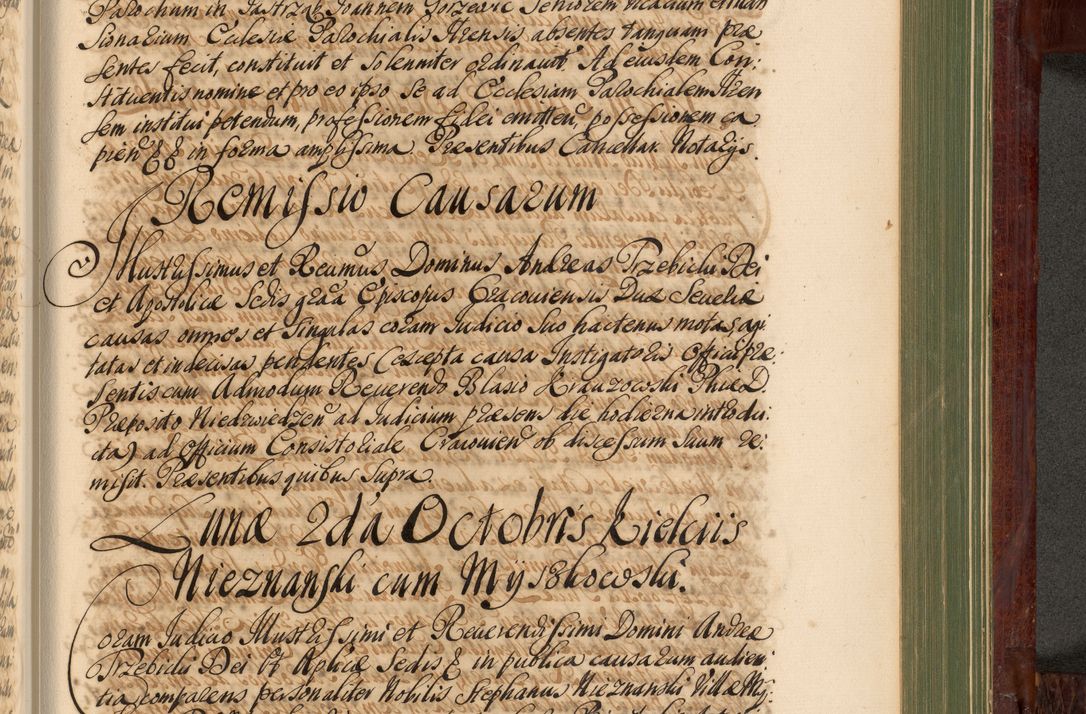 Parochum in Jastrząb Joannem Gorzeovic Seniorem Vicarium et Man
sionarium Ecclesiæ Parochialis Ilzensis absentes tanquam præ
sentes fecit, constituit et solenniter ordinavit. Ad eiusdem Con:
stituentis nomine et pro eo ipso se ad Ecclesiam Parochialem Ilzen
sem institui petendum, professionem fidei emitten, possessionem ca
pien & & in forma amplissima Præsentibus Cancellar. Notarys.
Remissio Causarum
Illustrissimus et Reumus Dominus Andreas Trzebicki Dei
et Apostolicæ Sedis graa Episcopus Cracouiensis Dux Seueriæ
causas omnes et singulas coram Judicio suo hactenus motas, agi
tatas et indecisas pendentes (excepta causa Instigatoris Officii præ:
sentis cum Admodum Reuerendo Blasio Krauzowski Phiæ D
Præposito Niedzwiedzen ad Judicium præsens die hodierna introdu:
cta) ad Officium Consistoriale Cracouien ob discessum suum re:
misit. Præsentibus quibus supra.
Lunæ 2da Octobris Kielciis
Nieznanski cum Myszkowski.
Coram Judicio Illustrissimi et Reuerendissimi Domini Andreæ
Trzebicki Dei et Aplicæ Sedis & in publica causarum audien:
tia comparens personaliter Nobilis Stephanus Nieznanski Villæ My: